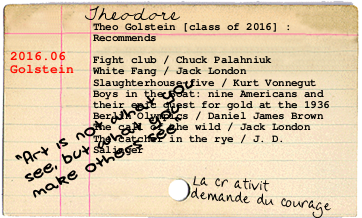 Theodore
Theo Golstein [class of 2016] :
Recommends
2016.06
Golstein
Fight club / Chuck Palahniuk
White Fang / Jack London
Slaughterhouse-five / Kurt Vonnegut
Boys in the boat: nine Americans and
their epic quest for gold at the 1936
Berlin Olympics / Daniel James Brown
The call of the wild / Jack London
The catcher in the rye / J. D.
Salinger
"Art is not what you
see, but what you
make others see
La cr ativit
demande du courage